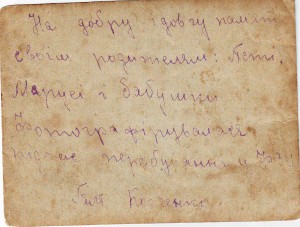 На добру і довгу память
своїм родителям: Петі,
Марусі і бабушки
Фотографірувалися
підчас перебування в
Гнат